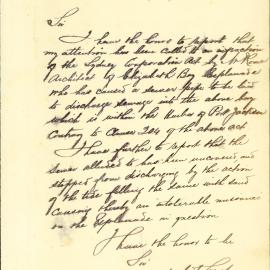 Sir
I have the honor to report that
my attention has been called to an infraction
of the Sydney Corporation Act by
Architect of Elizabeth Bay Esplanade
who has caused a sewer pipe to be laid
to discharge sewage into the above bay
which is within the limits of Port Jackson
Contrary to Clause 204 of the above act
I have further to report that the
sewer alluded to has been uncovered and
stopped from discharging by the action
of the tide filling the same with sand
causing thereby an intolerable nuisance
on the Esplanade in question
I have the honor to be
Sir